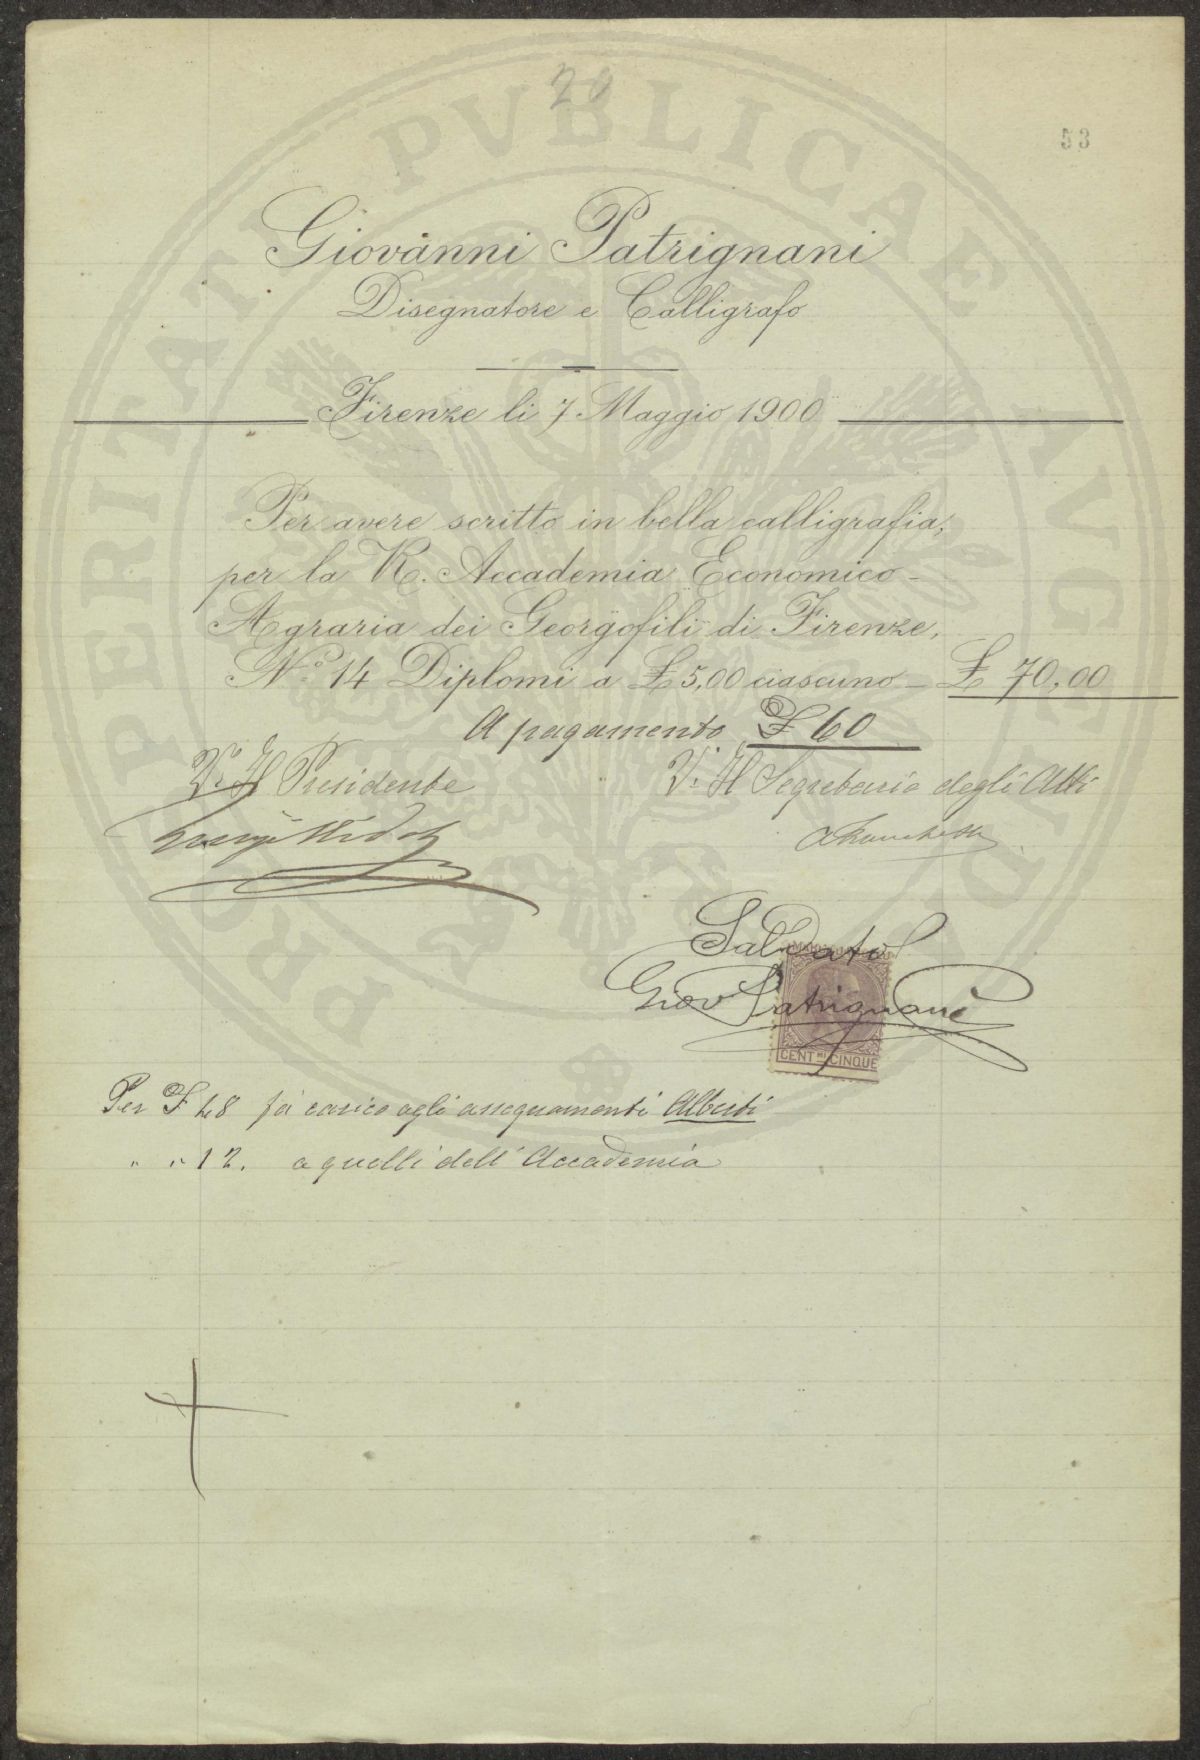 20
53
Giovanni Patrignani
Disegnatore e Calligrafo
Firenze li 7 Maggio 1900
Per avere scritto in bella calligrafia,
per la R. Accademia Economico-
Agraria dei Georgofili di Firenze,
N.° 14 Diplomi a £ 5,00 ciascuno — £ 70,00
A pagamento £ 60
V° Il Presidente
V° Il Segretario degli Atti
Saldato
Giov Patrignani
CENT.MI CINQUE
Per £ 48 fa carico agli assegnamenti Alberti
" " 12. a quelli dell'Accademia
PROSPERITATI PVBLICAE AVGENDAE